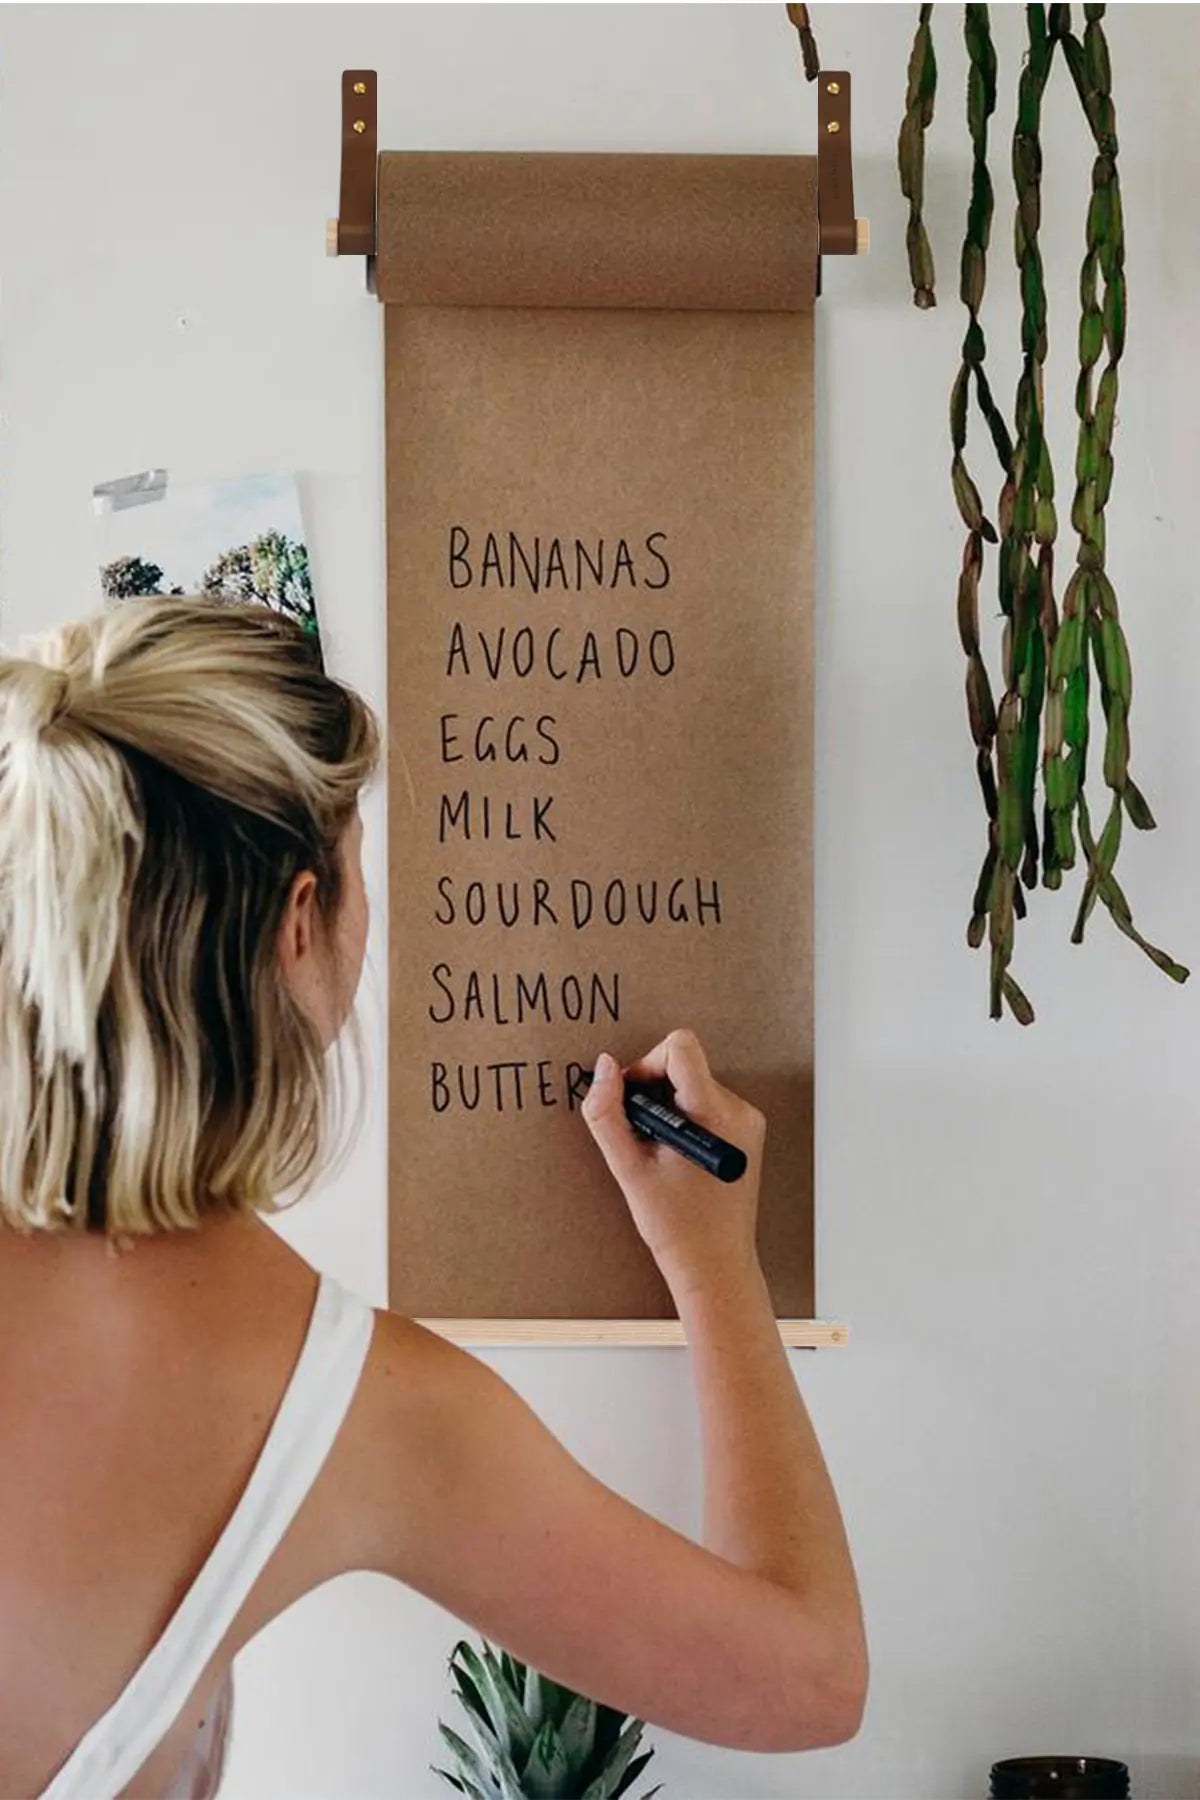 BANANAS
AVOCADO
EGGS
MILK
SOURDOUGH
SALMON
BUTTER